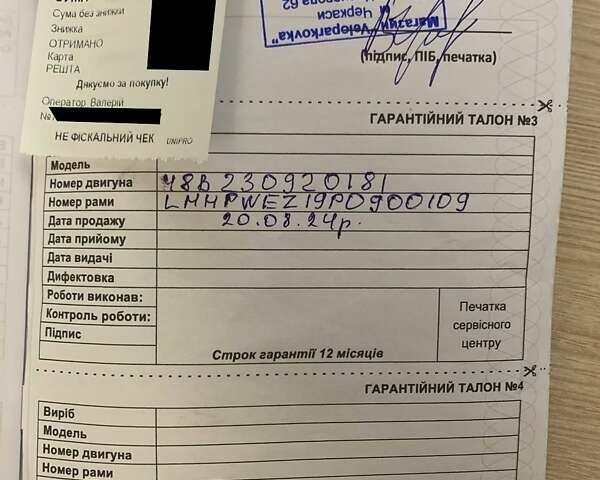 СУМА
Сума без знижки
Знижка
ОТРИМАНО
Карта
РЕШТА
Дякуємо за покупку!
Оператор Валерій
№
НЕ ФІСКАЛЬНИЙ ЧЕК UNIPRO
Магазин "Veloparkovka"
м. Черкаси
62
(підпис, ПІБ, печатка)
ГАРАНТІЙНИЙ ТАЛОН №3
Модель
Номер двигуна 48В230920181
Номер рами LMHPWEZ19PD900109
Дата продажу 20.08.24р.
Дата прийому
Дата видачі
Дифектовка
Роботи виконав:
Контроль роботи:
Підпис
Строк гарантії 12 місяців
Печатка
сервісного
центру
ГАРАНТІЙНИЙ ТАЛОН №4
Виріб
Модель
Номер двигуна
Номер рами